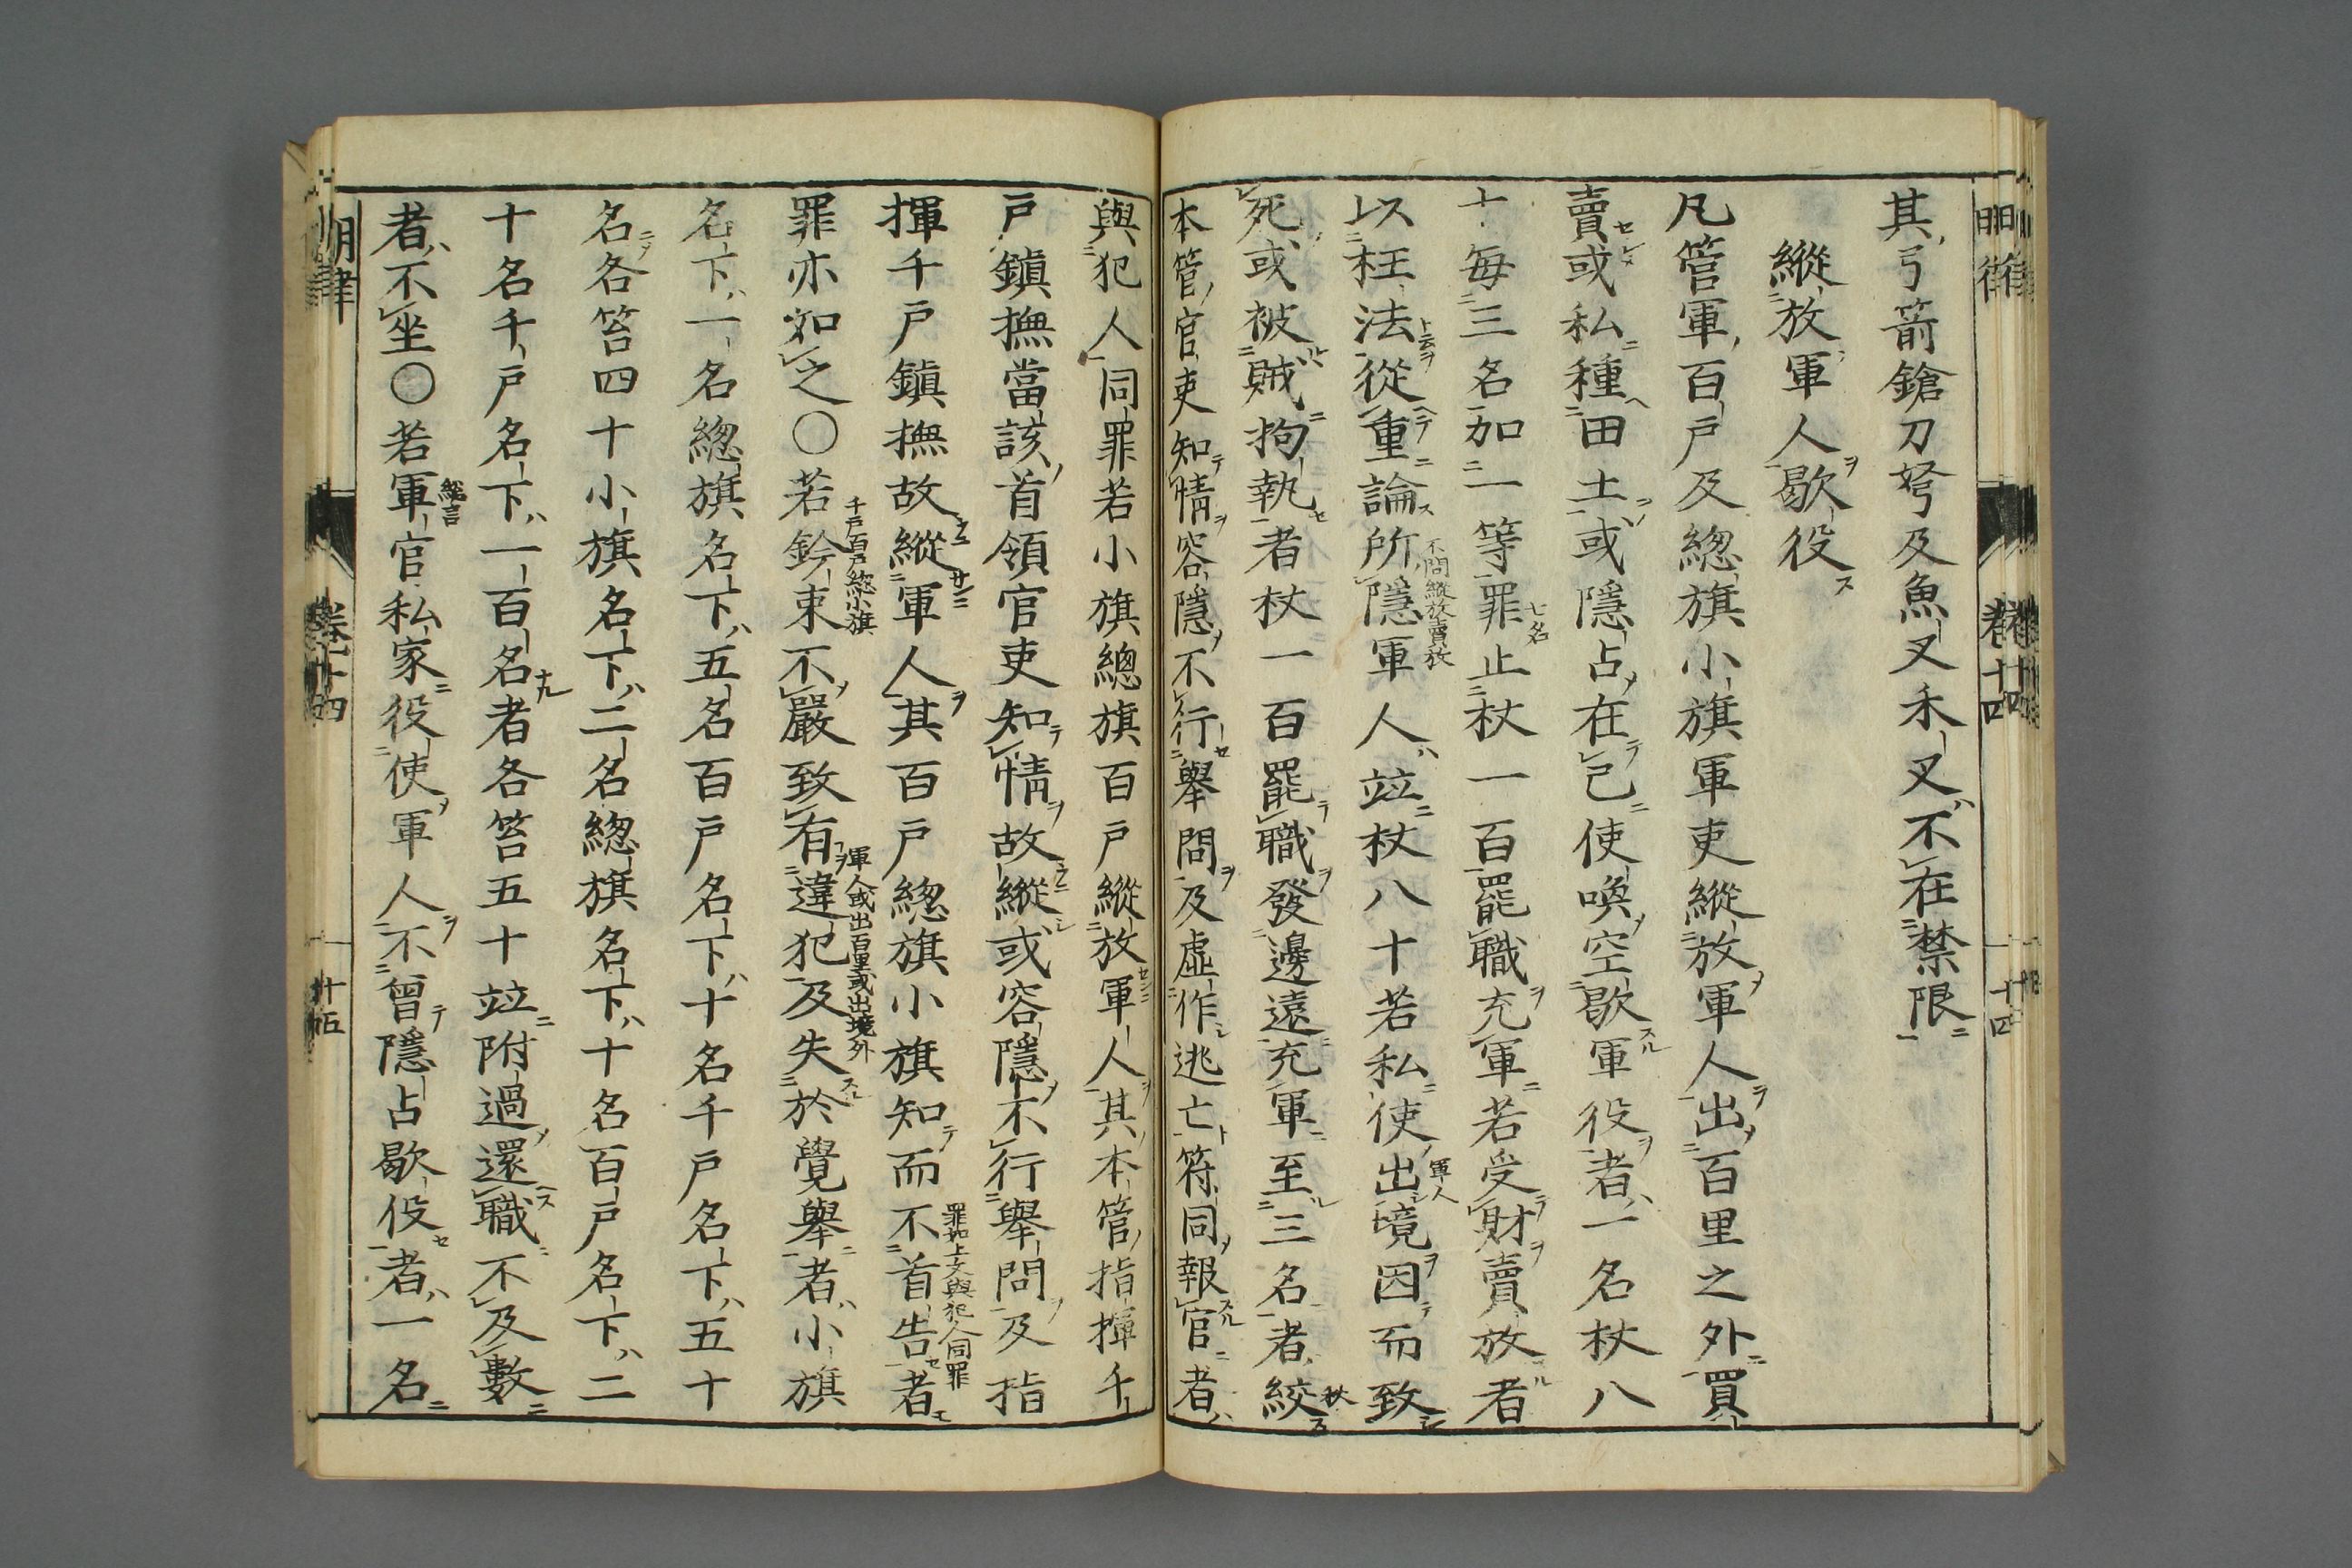 其弓箭鎗刀弩及魚叉禾叉不在禁限
縱放軍人歇役
凡管軍百戶及總旗小旗軍吏縱放軍人出百里之外買
賣或私種田土或隱占在己使喚空歇軍役者一名杖八
十每三名加一等罪止杖一百罷職充軍若受財賣放者
七名
以枉法從重論所隱軍人竝杖八十若私使出境因而致
不問縱放賣放
軍人
死或被賊拘執者杖一百罷職發邊遠充軍至三名者絞
秋
本管官吏知情容隱不行舉問及虛作逃亡符同報官者
與犯人同罪若小旗總旗百戶縱放軍人其本管指揮千
戶鎮撫當該首領官吏知情故縱或容隱不行舉問及指
揮千戶鎮撫故縱軍人其百戶總旗小旗知而不首告者
罪如上文與犯人同罪
罪亦如之〇若鈐束不嚴致有違犯及失於覺舉者小旗
千戶百戶總小旗
軍人或出百里或出境外
名下一名總旗名下五名百戶名下十名千戶名下五十
名各笞四十小旗名下二名總旗名下十名百戶名下二
十名千戶名下一百名者各笞五十竝附過還職不及數
者不坐〇若軍官私家役使軍人不曾隱占歇役者一名
總言
明律
卷十四
十四
明律
卷十四
十五